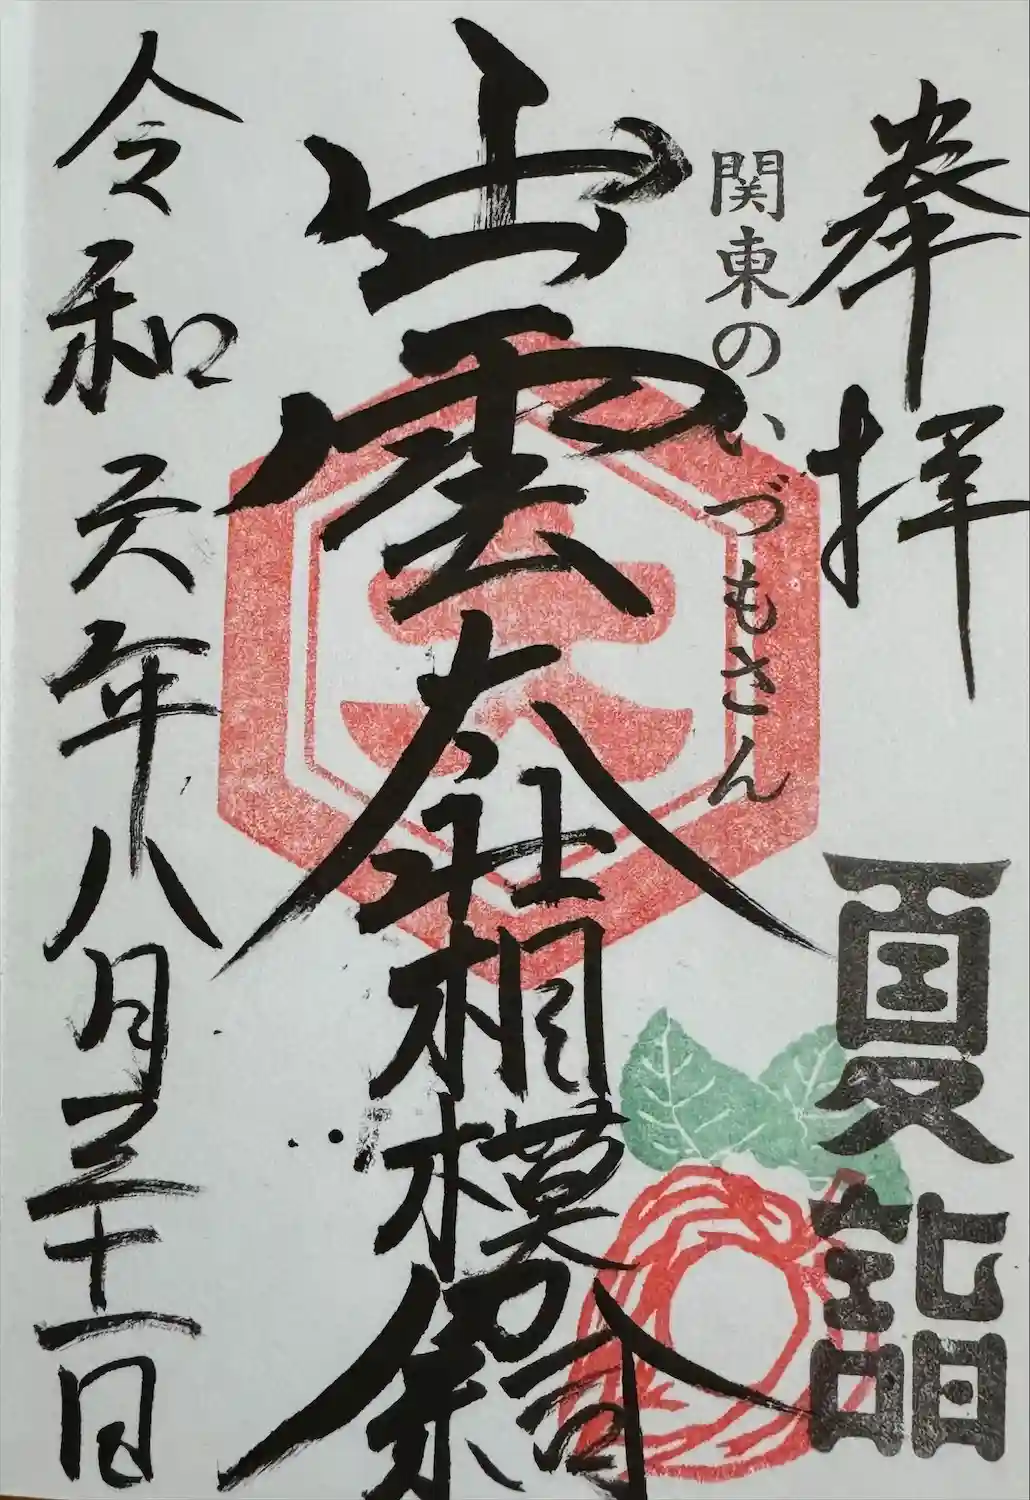 奉拝
夏詣
関東のいづもさん
出雲大社相模分祠
大
令和六年八月三十一日